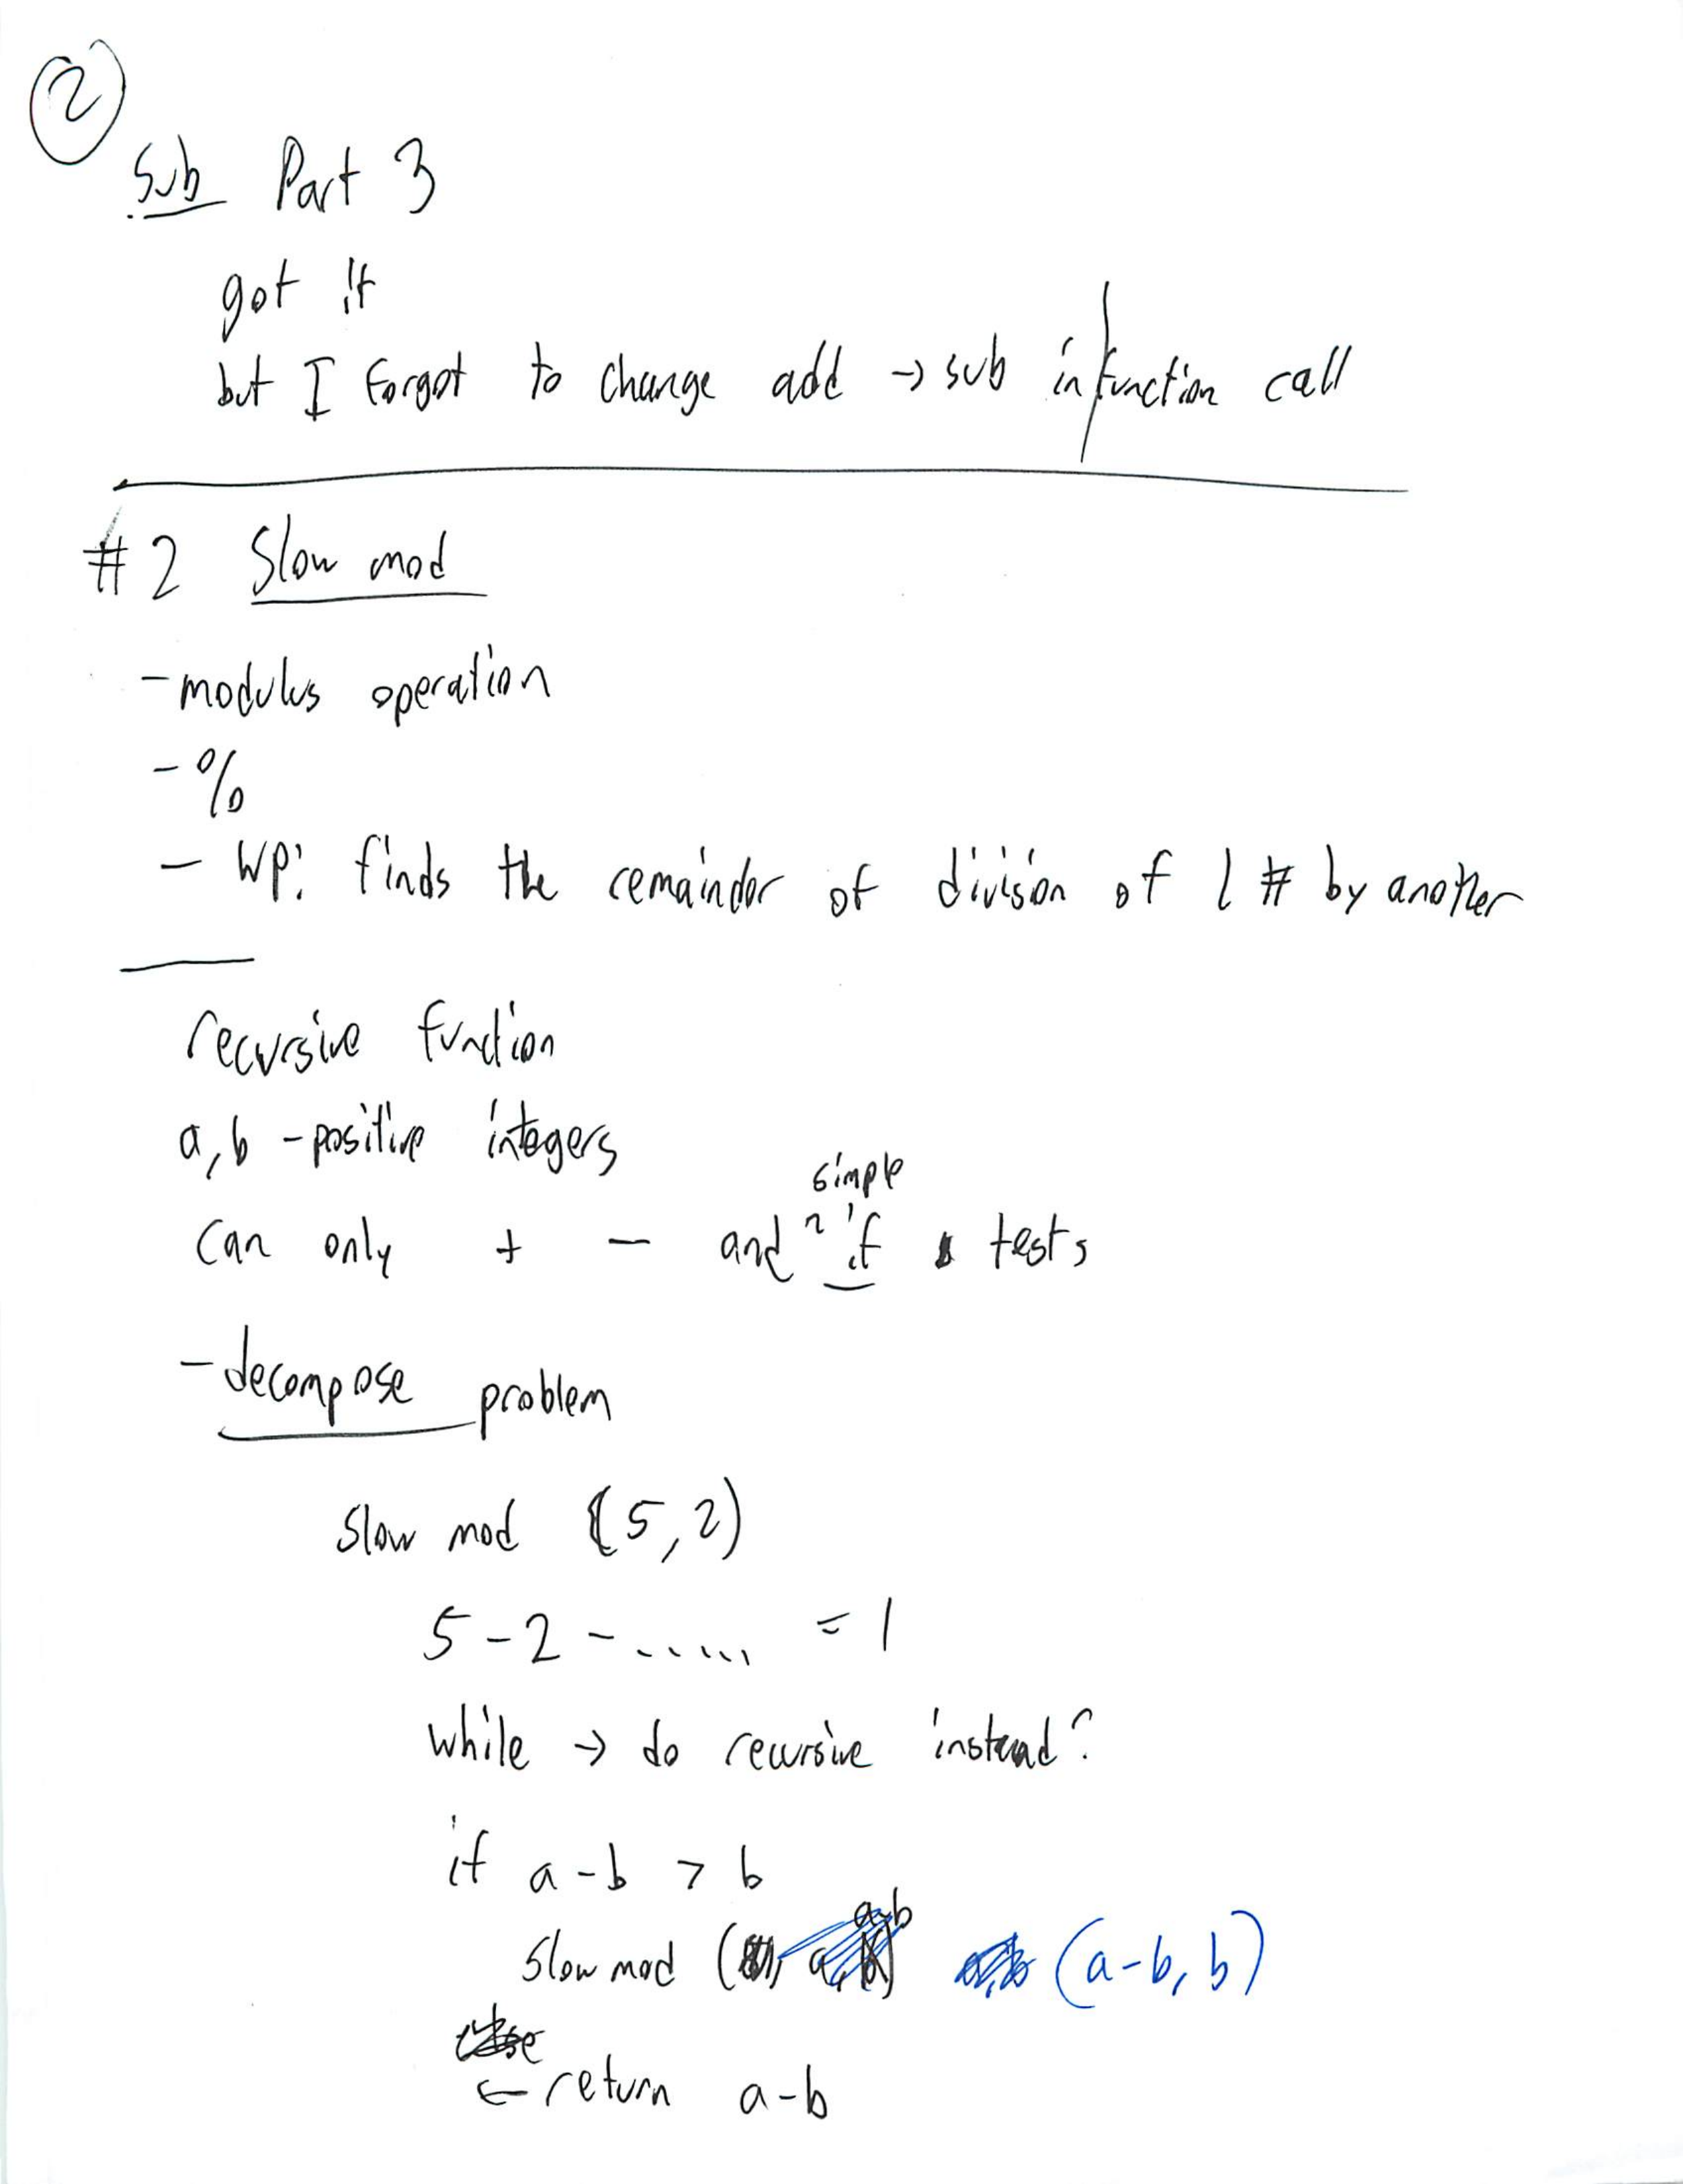 2
Sub Part 3
got it
but I forgot to change add → sub in/function call
#2 Slow mod
- modulus operation
- %
- WP: finds the remainder of division of 1 # by another
recursive function
a,b - positive integers
simple
can only + - and if tests
- decompose problem
slow mod (5,2)
5 - 2 - ...... = 1
while → do recursive instead?
if a-b > b
a-b
slow mod ( (a-b, b)
← return a-b